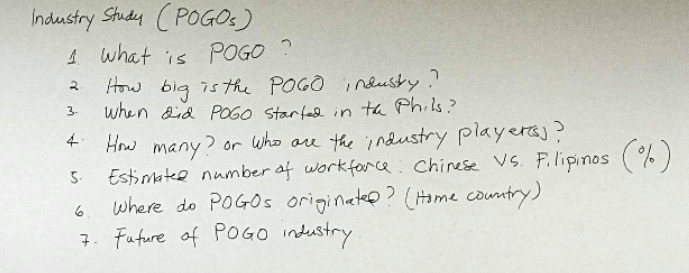 Industry Study (POGOs)
1. What is POGO?
2. How big is the POGO industry?
3. When did POGO started in the Phils?
4. How many? or Who are the industry player(s)?
5. Estimated number of workforce: Chinese Vs. Filipinos (%)
6. Where do POGOs originated? (Home country)
7. Future of POGO industry.